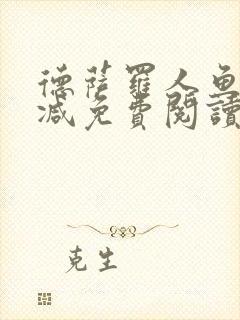 德薩羅人魚
減免費閱讀
克生